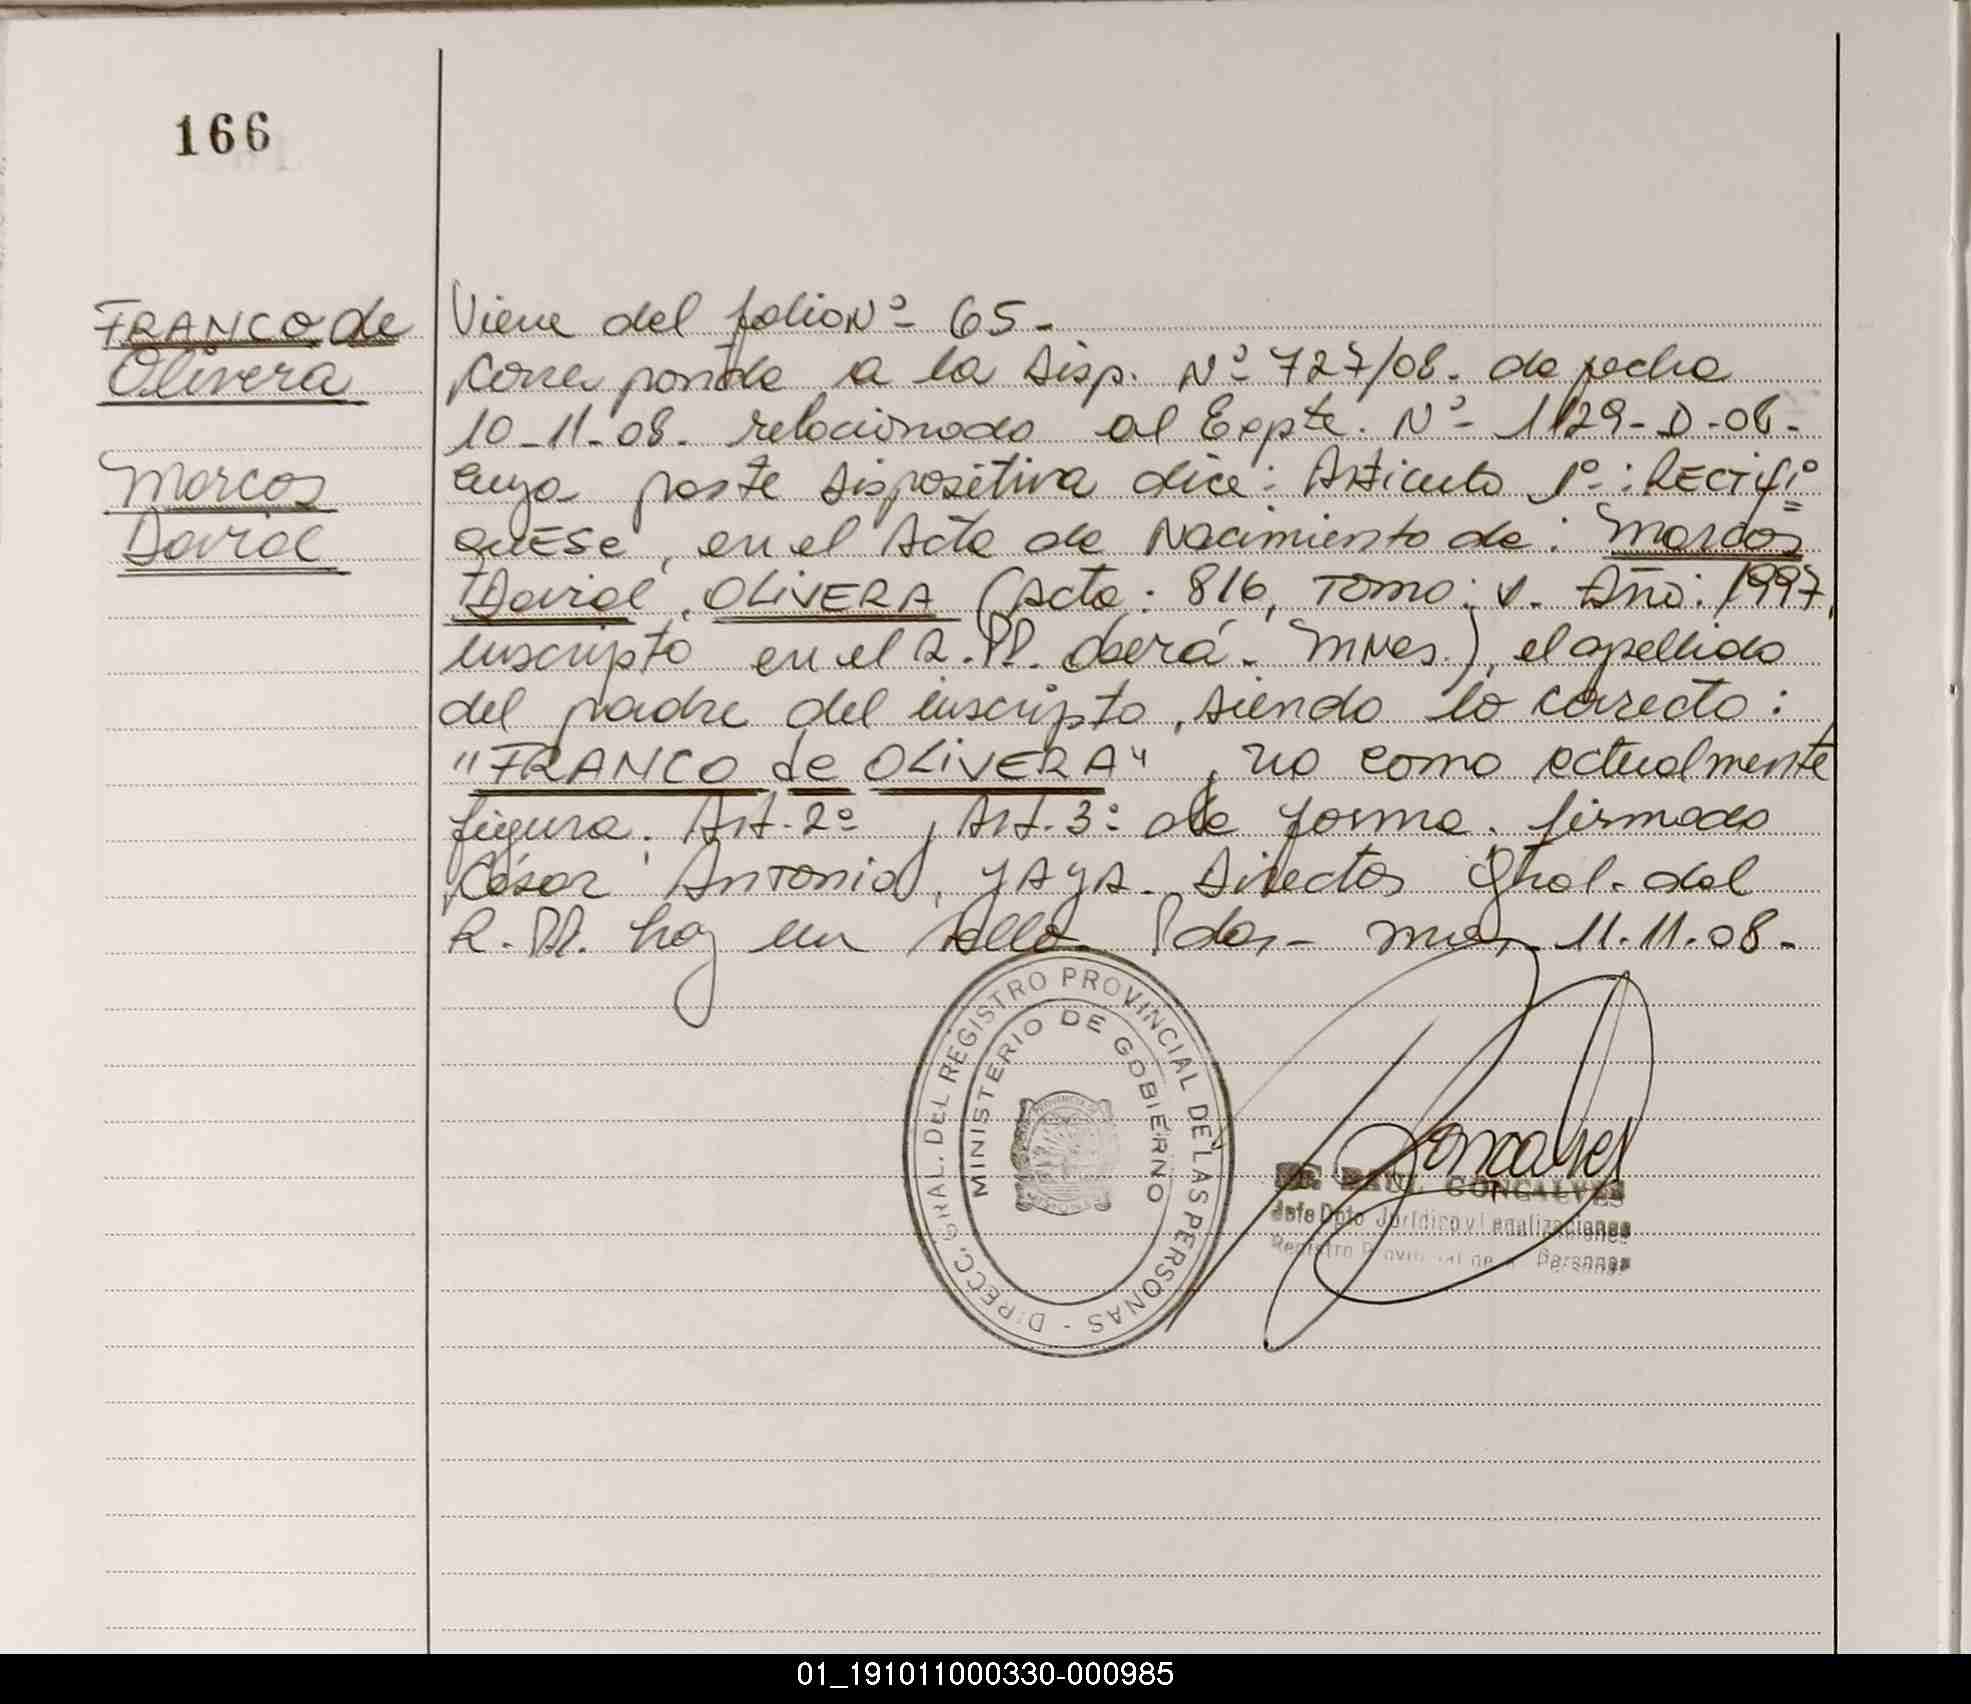 166
FRANCO de
Olivera
Marcos
David
Viene del folio Nº 65-
Corresponde a la Disp. Nº 727/08. de fecha
10-11-08. relacionado al Expte. Nº 1129-D-08-
cuya parte dispositiva dice: Artículo 1º: RECTIFI=
QUESE, en el Acta de Nacimiento de: Marcos
David, OLIVERA (Acta: 816, TOMO: V. Año: 1997,
inscripto en el R.PP. Oberá- Mnes.), el apellido
del padre del inscripto, siendo lo correcto:
"FRANCO de OLIVERA", no como actualmente
figura. Art. 2º, Art. 3º de forma. firmado
César Antonio, YAYA. Director Gral. del
R.PP. hay un sello Pdas- Mnes- 11.11.08-
DIRECC. GRAL. DEL REGISTRO PROVINCIAL DE LAS PERSONAS -
MINISTERIO DE GOBIERNO
Goncalves
RAUL GONCALVES
Jefe Dpto Jurídico y Legalizaciones
Registro Provincial de Personas
01_191011000330-000985